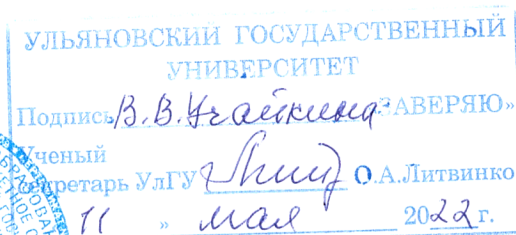 УЛЬЯНОВСКИЙ ГОСУДАРСТВЕННЫЙ
УНИВЕРСИТЕТ
Подпись В.В.Учайкина ЗАВЕРЯЮ»
Ученый
секретарь УлГУ О.А.Литвинко
11 » мая 2022 г.